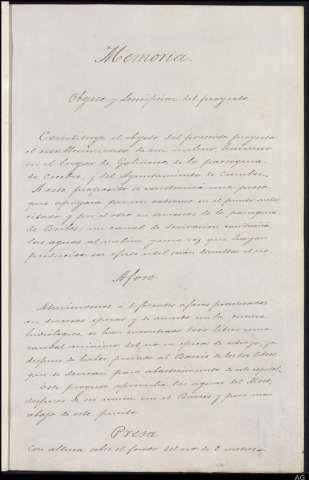 Memoria.
Objeto y descripcion del proyecto
Constituye el objeto del presente proyecto
el establecimiento de un molino harinero
en el lugar de de la parroquia
de Cecebre, y del Ayuntamiento de Cambre.
A este proposito se construirá una presa
que apoyará por un extremo en el punto antes
citado y por el otro en terrenos de la parroquia
de un canal de derivacion conducirá
las aguas al molino y una vez que hayan
producido su efecto util serán devueltas al rio.
Aforo
Ateniendonos á diferentes aforos practicados
en diversas epocas y de acuerdo con la
hidrologica se han encontrado litros como
caudal minimo del rio en epoca de estiaje, ya
despues de haber privado al Barcés de los litros
que se derivan para abastecimiento de esta capital.
Este proyecto aprovecha las aguas del Mero,
despues de su union con el Barcés y poco mas
abajo de este punto.
Presa
Con altura sobre el fondo del rio de 2 metros
AG